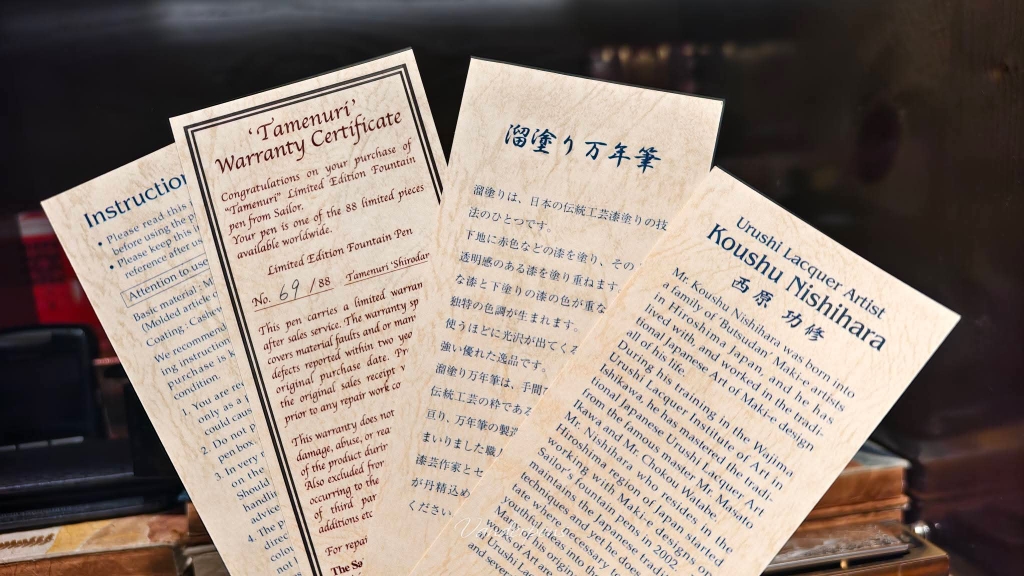 Instruction
• Please read this
before using the p
• Please keep this i
reference after us
Attention to use
Basic material: M
(Molded article
Coating: Cashew
We recommend
ing instruction
purchase is k
condition.
1. You are re
only as a f
could caus
2. Do not
pen box
3. In very
en the
Should
handli
advice
4. The p
direc
colo
not
'Tamenuri'
Warranty Certificate
Congratulations on your purchase of
"Tamenuri" Limited Edition Fountain
pen from Sailor.
Your pen is one of the 88 limited pieces
available worldwide.
Limited Edition Fountain Pen
No. 69 / 88 Tamenuri 'Shirodam
This pen carries a limited warran
after sales service. The warranty sp
covers material faults and or manu
defects reported within two yea
original purchase date. Pr
the original sales receipt v
prior to any repair work co
This warranty does not
damage, abuse, or rea
of the product durin
Also excluded from
occurring to the
of third par
additions etc
For repai
The So
溜塗り万年筆
溜塗りは、日本の伝統工芸漆塗りの技
法のひとつです。
下地に赤色などの漆を塗り、その
透明感のある漆を塗り重ねます。
な漆と下塗りの漆の色が重な
独特の色調が生まれます。
使うほどに光沢が出てくる
強い優れた逸品です。
溜塗り万年筆は、手間
伝統工芸の粋である
亘り、万年筆の製造
まいりました職人
漆芸作家とセ
が丹精込め
ください
Urushi Lacquer Artist
Koushu Nishihara
西原 功修
Mr. Koushu Nishihara was born into
a family of Butsudan' Maki-e artists
in Hiroshima, Japan, and he has
lived with, and worked in the tradi-
tional Japanese Art of Maki-e design
all of his life.
During his training in the Wajima
Urushi Lacquer Institute of Art in
Ishikawa, he has mastered the tradi-
tional Japanese Urushi Lacquer Art
from the famous master Mr. Masato
Kawa and Mr. Chokou Wakashima.
Mr. Nishihara who resides in the
Hiroshima region of Japan, started
working with Maki-e designs on
Sailor's fountain pens in 2002. He
maintains the Japanese traditional
techniques and yet he does not
hesitate when necessary to
youthful ideas into the
Many of his origin
works of
of Urushi Lac
and several